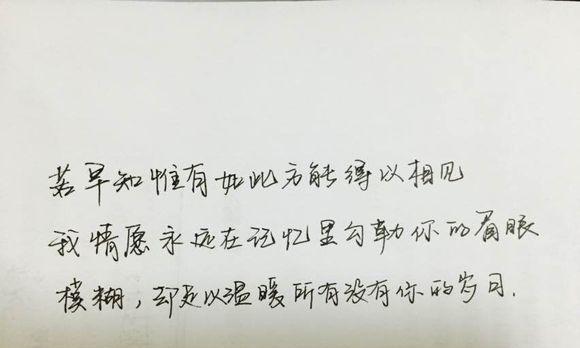 若早知惟有如此方能得以相见
我情愿永远在记忆里勾勒你的眉眼
模糊，却足以温暖所有没有你的岁月.